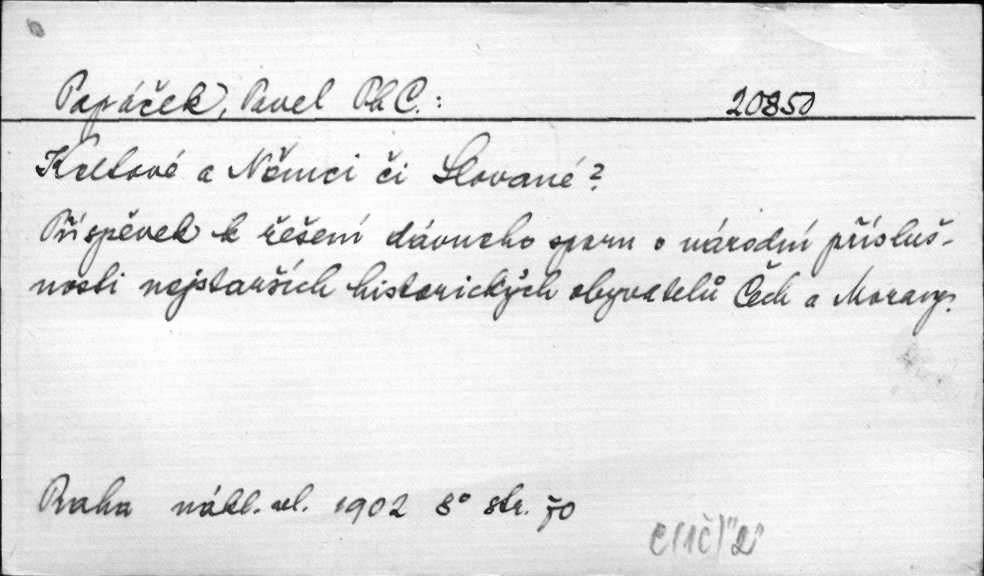 Papáček, Pavel PhC.: 20850
Keltové a Němci či Slované?
Příspěvek k řešení dávného sporu o národní přísluš-
nosti nejstarších historických obyvatelů Čech a Moravy.
Praha nákl. vl. 1902 8° str. 70
C(1č)"2"